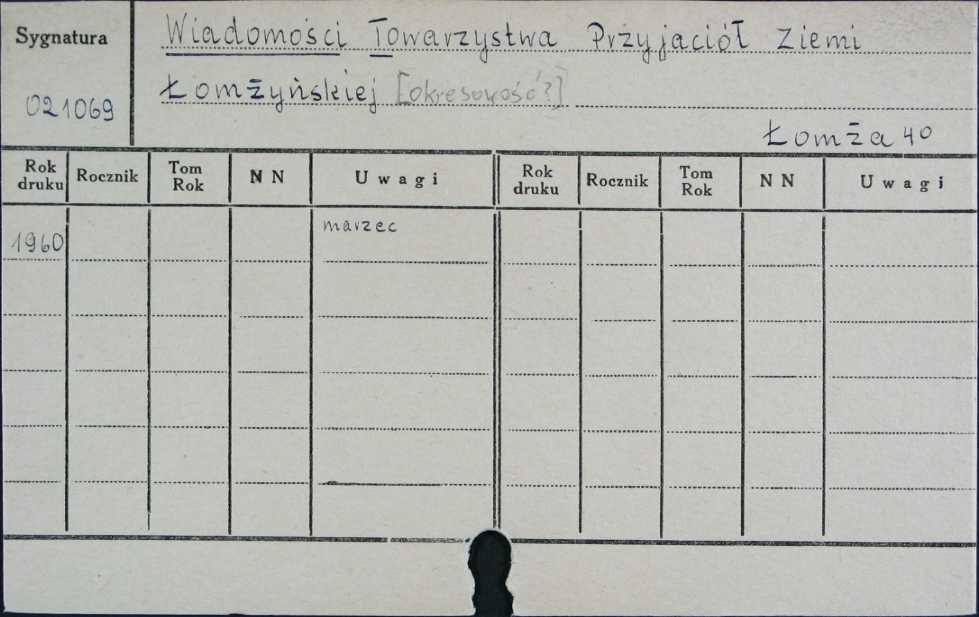 Sygnatura
021069
Wiadomości Towarzystwa Przyjaciół Ziemi
Łomżyńskiej [okresowość?]
Łomża 4o
Rok druku Rocznik Tom Rok NN Uwagi Rok druku Rocznik Tom Rok NN Uwagi
1960 marzec